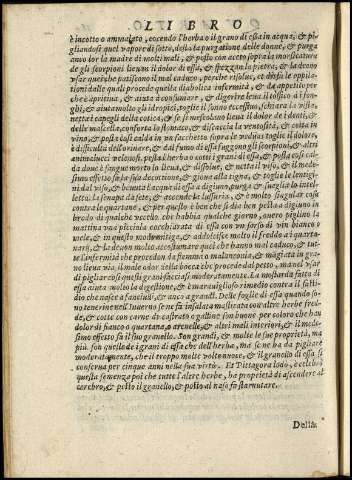 LIBRO
è incotto o ammalato, cocendo l'herba o il grano di essa in acqua, & pi
gliandosi quel vapore di sotto, della purgatione delle donne, & purga
anco lor la madre di molti mali, & posto con aceto sopra la morsicatura
de gli scorpioni lieva il dolor di essa, & spezza la pietra, & la deono
usar quei che patiscono il mal caduco, perche risolue, et dissipa le oppila-
tioni dalli quali procede quella diabolica infermità, & da appetito per
che è apritiua, & aiuta à consumare, & digerire leua il tossico di fon-
ghi, & aiuta molto gli idropici, toglie il sonno eccessiuo, schiara la vista,
netta i capegli della cotica, & se si mescolano lieua il dolor de i denti, &
delle mascella, conforta lo stomaco, & discaccia la ventosità, & cotta in
vino, & posta cosi calda in un sacchetto sopra la vessica toglie il dolore,
& difficultà dell'orinare, & dal fumo di essa fuggono gli scorpioni, & altri
animalucci velenosi. pesta l'herba o cotti i grani di essa, & posta cosi cal-
da doue è sangue morto lo lieua, & dissolue, & netta il viso, & il mede-
simo effetto fa la sua decottione, & gioua alla tigna, & toglie le lentigi
ni dal viso, & beuuta l'acqua di essa a digiuno, purga & sueglia lo intelle-
letto. La senapa da sete, & accende la lussuria, & è molto singular cosa
contro la quartane, & per questo è ben che si dia ben pesta a digiuno in
brodo di qualche vccello che habbia qualche giorno, ouero piglino la
mattina vna piccola cocchiarata di essa con vn sorso di vin bianco o
mele, & in questo modo mitiga, & addolcisce molto il freddo ai quarta-
narij, & la deono molto accostumare quei che hanno mal caduco, & tut-
te l'infermità che procedon da flemma o malanconia, & mangiata in gra-
no lieua via, il male odor della bocca che procede dal petto, ma nel vsar
di pigliar cosi questi grani facciasi moderatamente. La mostarda fatta di
essa aiuta molto la digestione, & è marauiglioso rimedio contra il fastti-
dio che nasce a fanciulli, & anco a grandi. Delle foglie di essa quando so-
no tenerine nell'Inuerno se ne fa insalata mesticata con altre herbe fred-
de, & cotte con carne di castrato o gallina son buone per coloro che han
dolor di fianco o quartana, o arenelle, & altri mali interiori, & il mede-
simo effetto fa il suo granello. Son grandi, & molte le sue proprietà, ma
più son quelle de i grani di essa che dell'herba, ma se ne ha da pigliare
moderatamente, che il troppo molte volte nuoce, & il granello di essa, si
conserua per cinque anni nella sua virtù. Et Pittagora lodò, & celebrò
questa semenza più che tutte l'altre herbe, ha proprietà di ascendere al
cerebro, & pesto il granello, & posto al naso fa starnutare.
Della